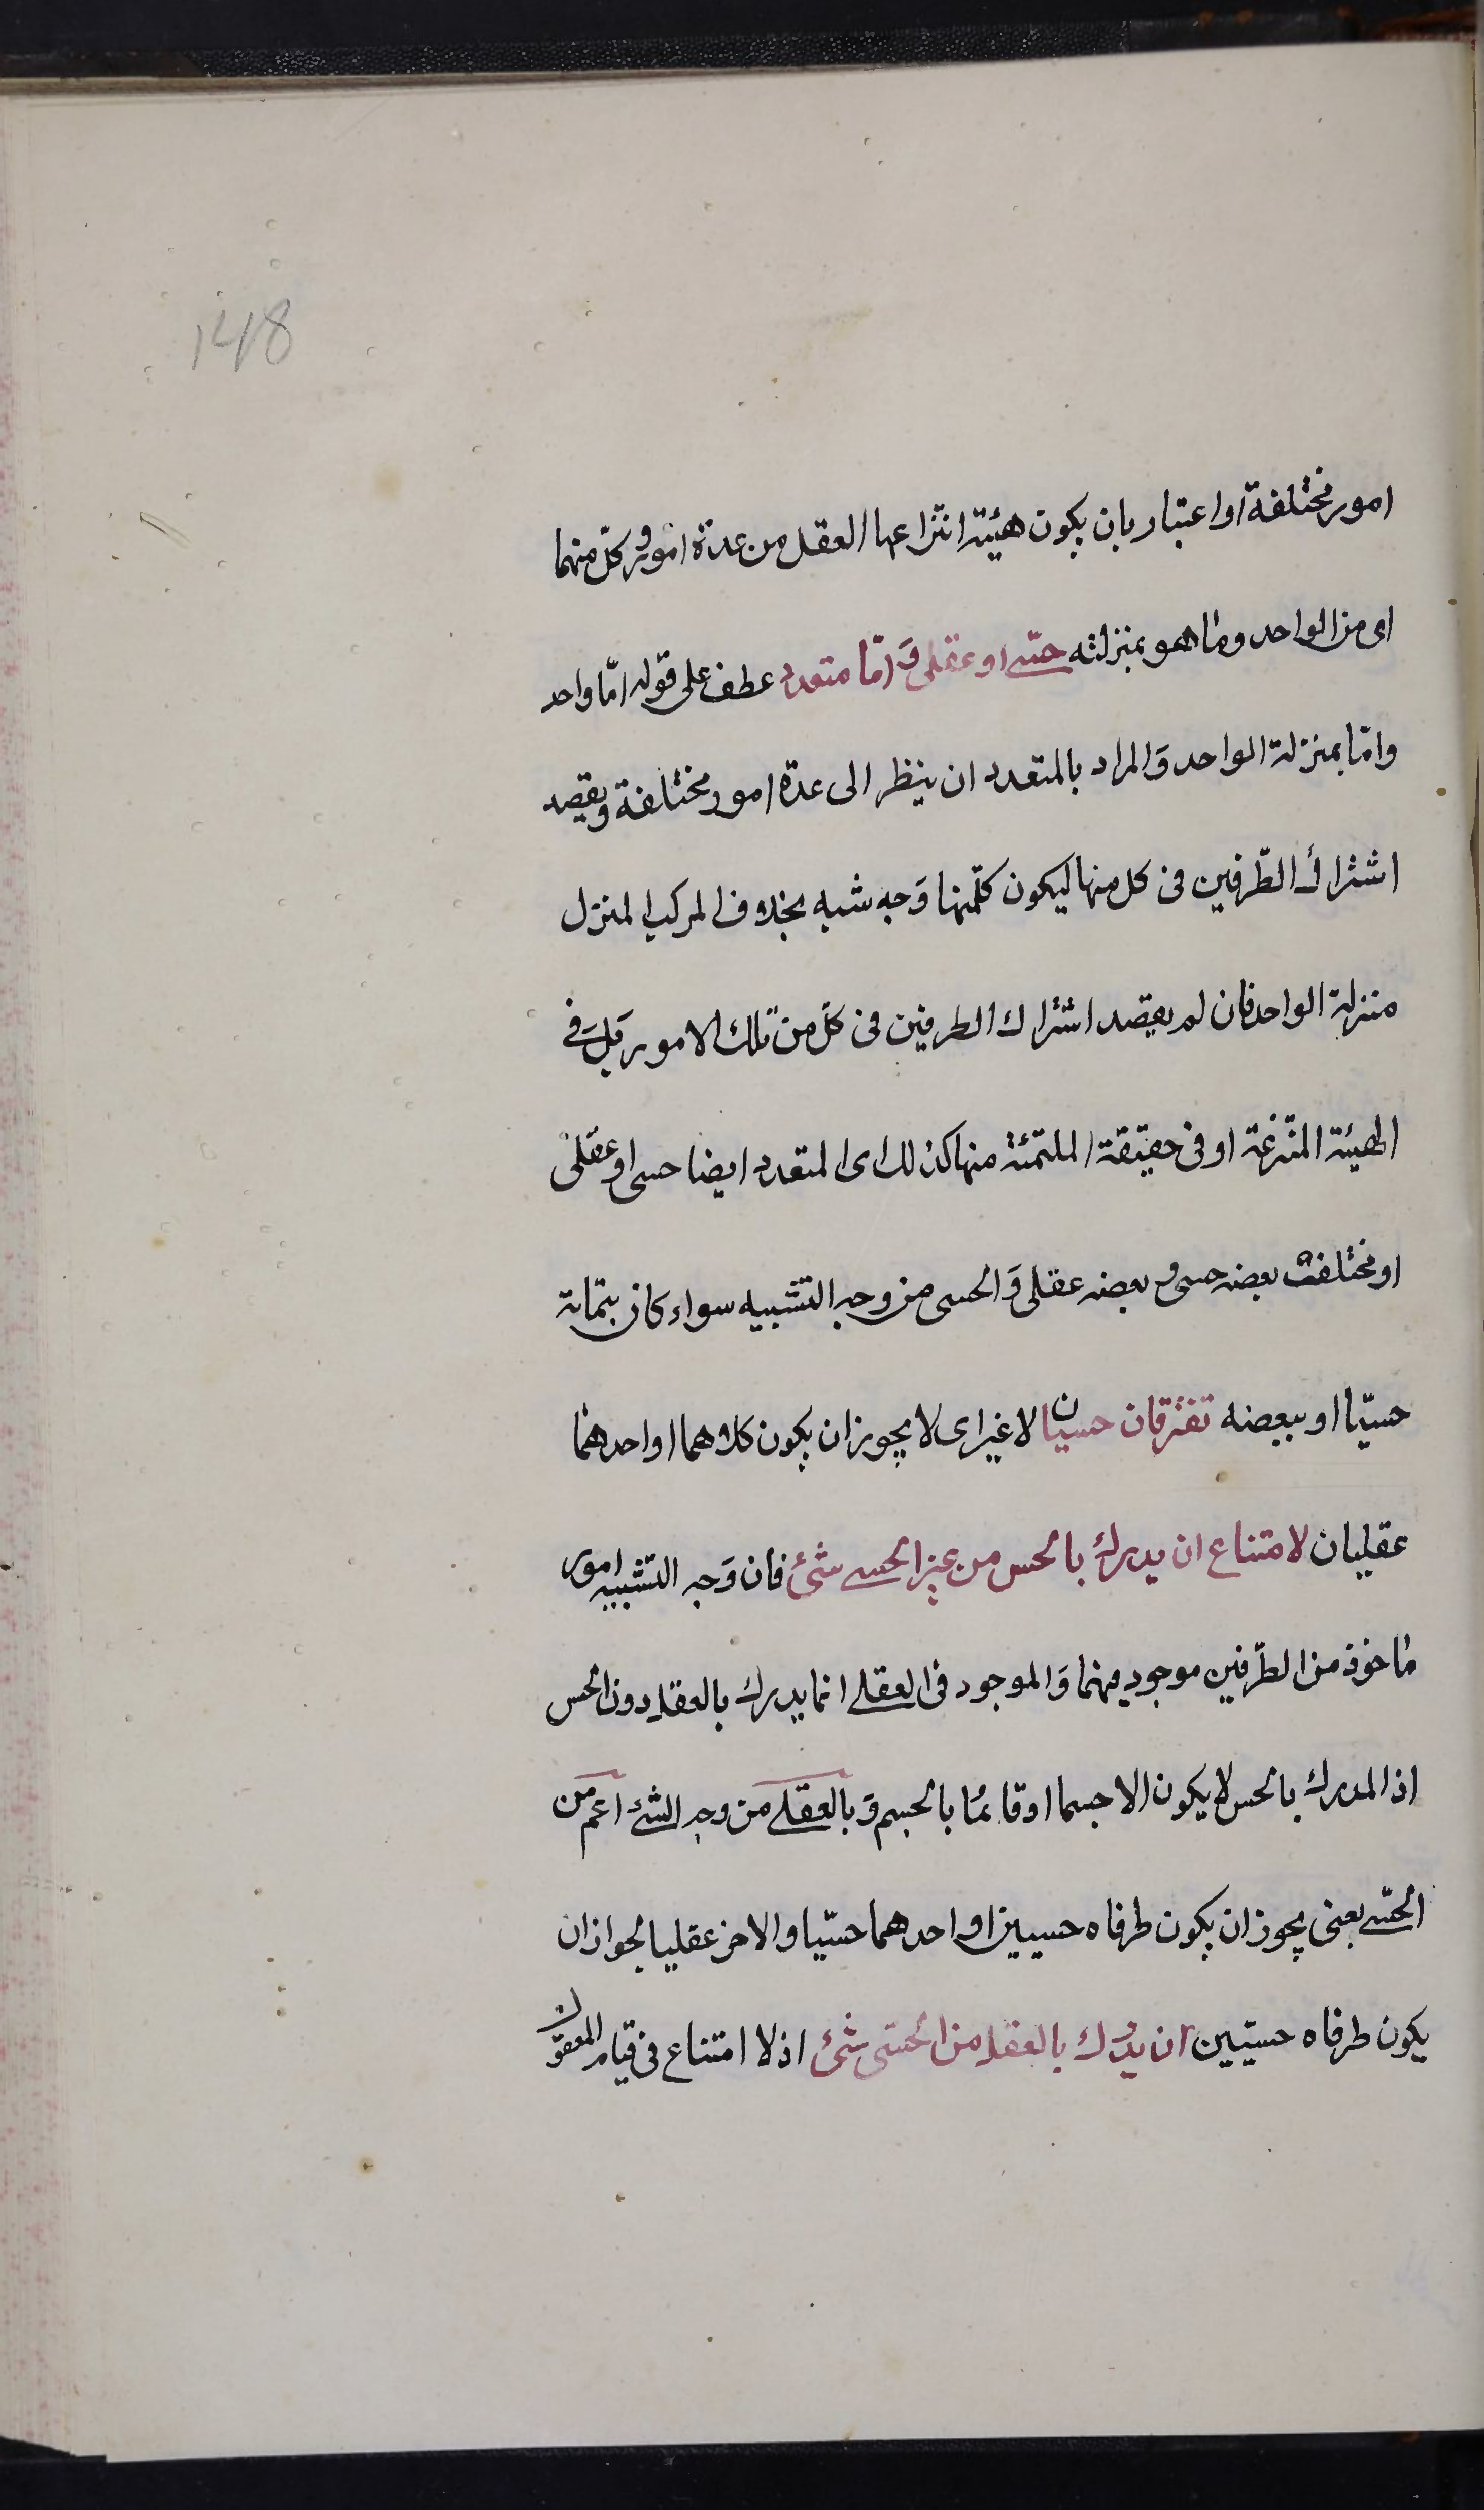 148
امور مختلفة او اعتبار بان يكون هيئة انتزاعها العقل من عدة امور وكل منهما
اى من الواحد وما هو بمنزلته حسى او عقلى وَامّا متعدد عطف على قوله امّا واحد
وامّا بمنزلة الواحد وَالمراد بالمتعدد ان ينظر الى عدة امور مختلفة ويقصد
اشتراك الطّرفين فى كل منها ليكون كلّ منها وَجه شبه بخلاف المركب المنزل
منزلة الواحد فان لم يقصد اشتراك الطرفين فى كلّ من تلك الامور بَل فى
الهيئة المنتزعة او فى حقيقة الملتئمة منها كذلك اى المتعدد ايضا حسى او عقلى
او مختلف بعضه حسى و بعضه عقلى وَالحسى من وجه التشبيه سواء كان بتمامه
حسيّا او ببعضه تفترقان حسيان لا غير اى لا يجوز ان يكون كلاهما او احدهما
عقليان لامتناع ان يدرك بالحس من غير الحسى شئ فان وَجه التشبيه امور
ماخوذ من الطّرفين موجود فيهما وَالموجود فى العقلى انما يدرك بالعقل دون الحس
اذ المدرك بالحس لا يكون الا جسما او قائمًا بالجسم وَبالعقلى من وجه الشئ اعمّ من
الحسّى يعنى يجوز ان يكون طرفاه حسيين او احدهما حسّيا والاخر عقليا لجواز ان
يكون طرفاه حسيّين ان يدرك بالعقل من الحسّى شئ اذ لا امتناع فى قيام المعقول